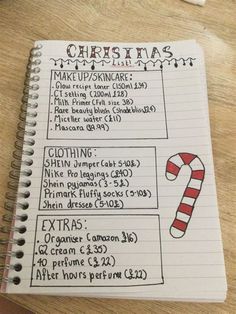 CHRISTMAS
List!
MAKEUP/SKINCARE:
. Glow recipe toner (150ml £34)
. CT setting (200ml £28)
. Milk Primer (Full size 38)
. Rare beauty blush (shade bliss £24)
. Micellar water (£11)
. Mascara (£9.99)
CLOTHING:
SHEIN Jumper (abt 5-10£)
Nike Pro leggings (£40)
Shein pyjamas (3-5£)
Primark fluffy socks (5-10£)
Shein dresses (5-10£)
EXTRAS:
. Organiser (amazon £16)
. 62 cream (£35)
. 40 perfume (£22)
After hours perfume (£22)